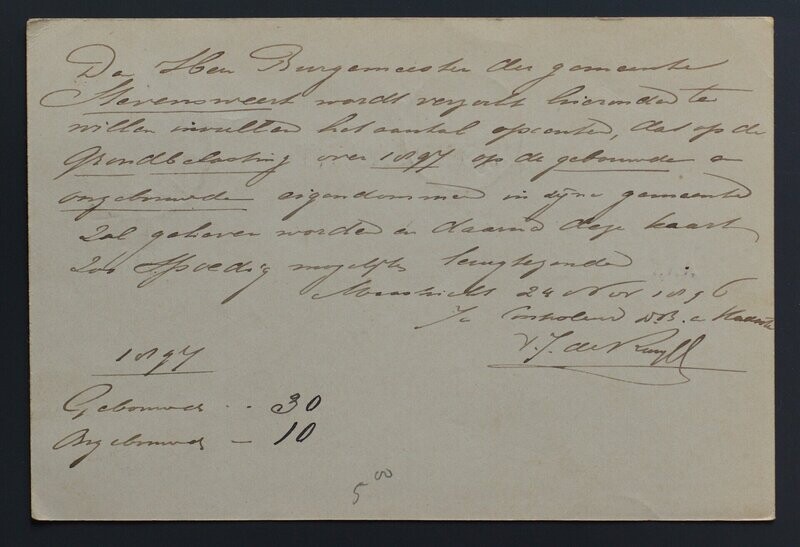 De Heer Burgemeester der gemeente
Stevensweert wordt verzocht hieronder te
willen invullen het aantal opcenten, dat op de
Grondbelasting over 1897 op de gebouwde en
ongebouwde eigendommen in zijne gemeente
zal geheven worden en daarna deze kaart
zoo spoedig mogelijk terugtezenden
Maastricht 24 Nov 1896
De Controleur D.B. e Kadaster
V. J. de
1897
Gebouwde - - 30
Ongebouwde - 10
5 00